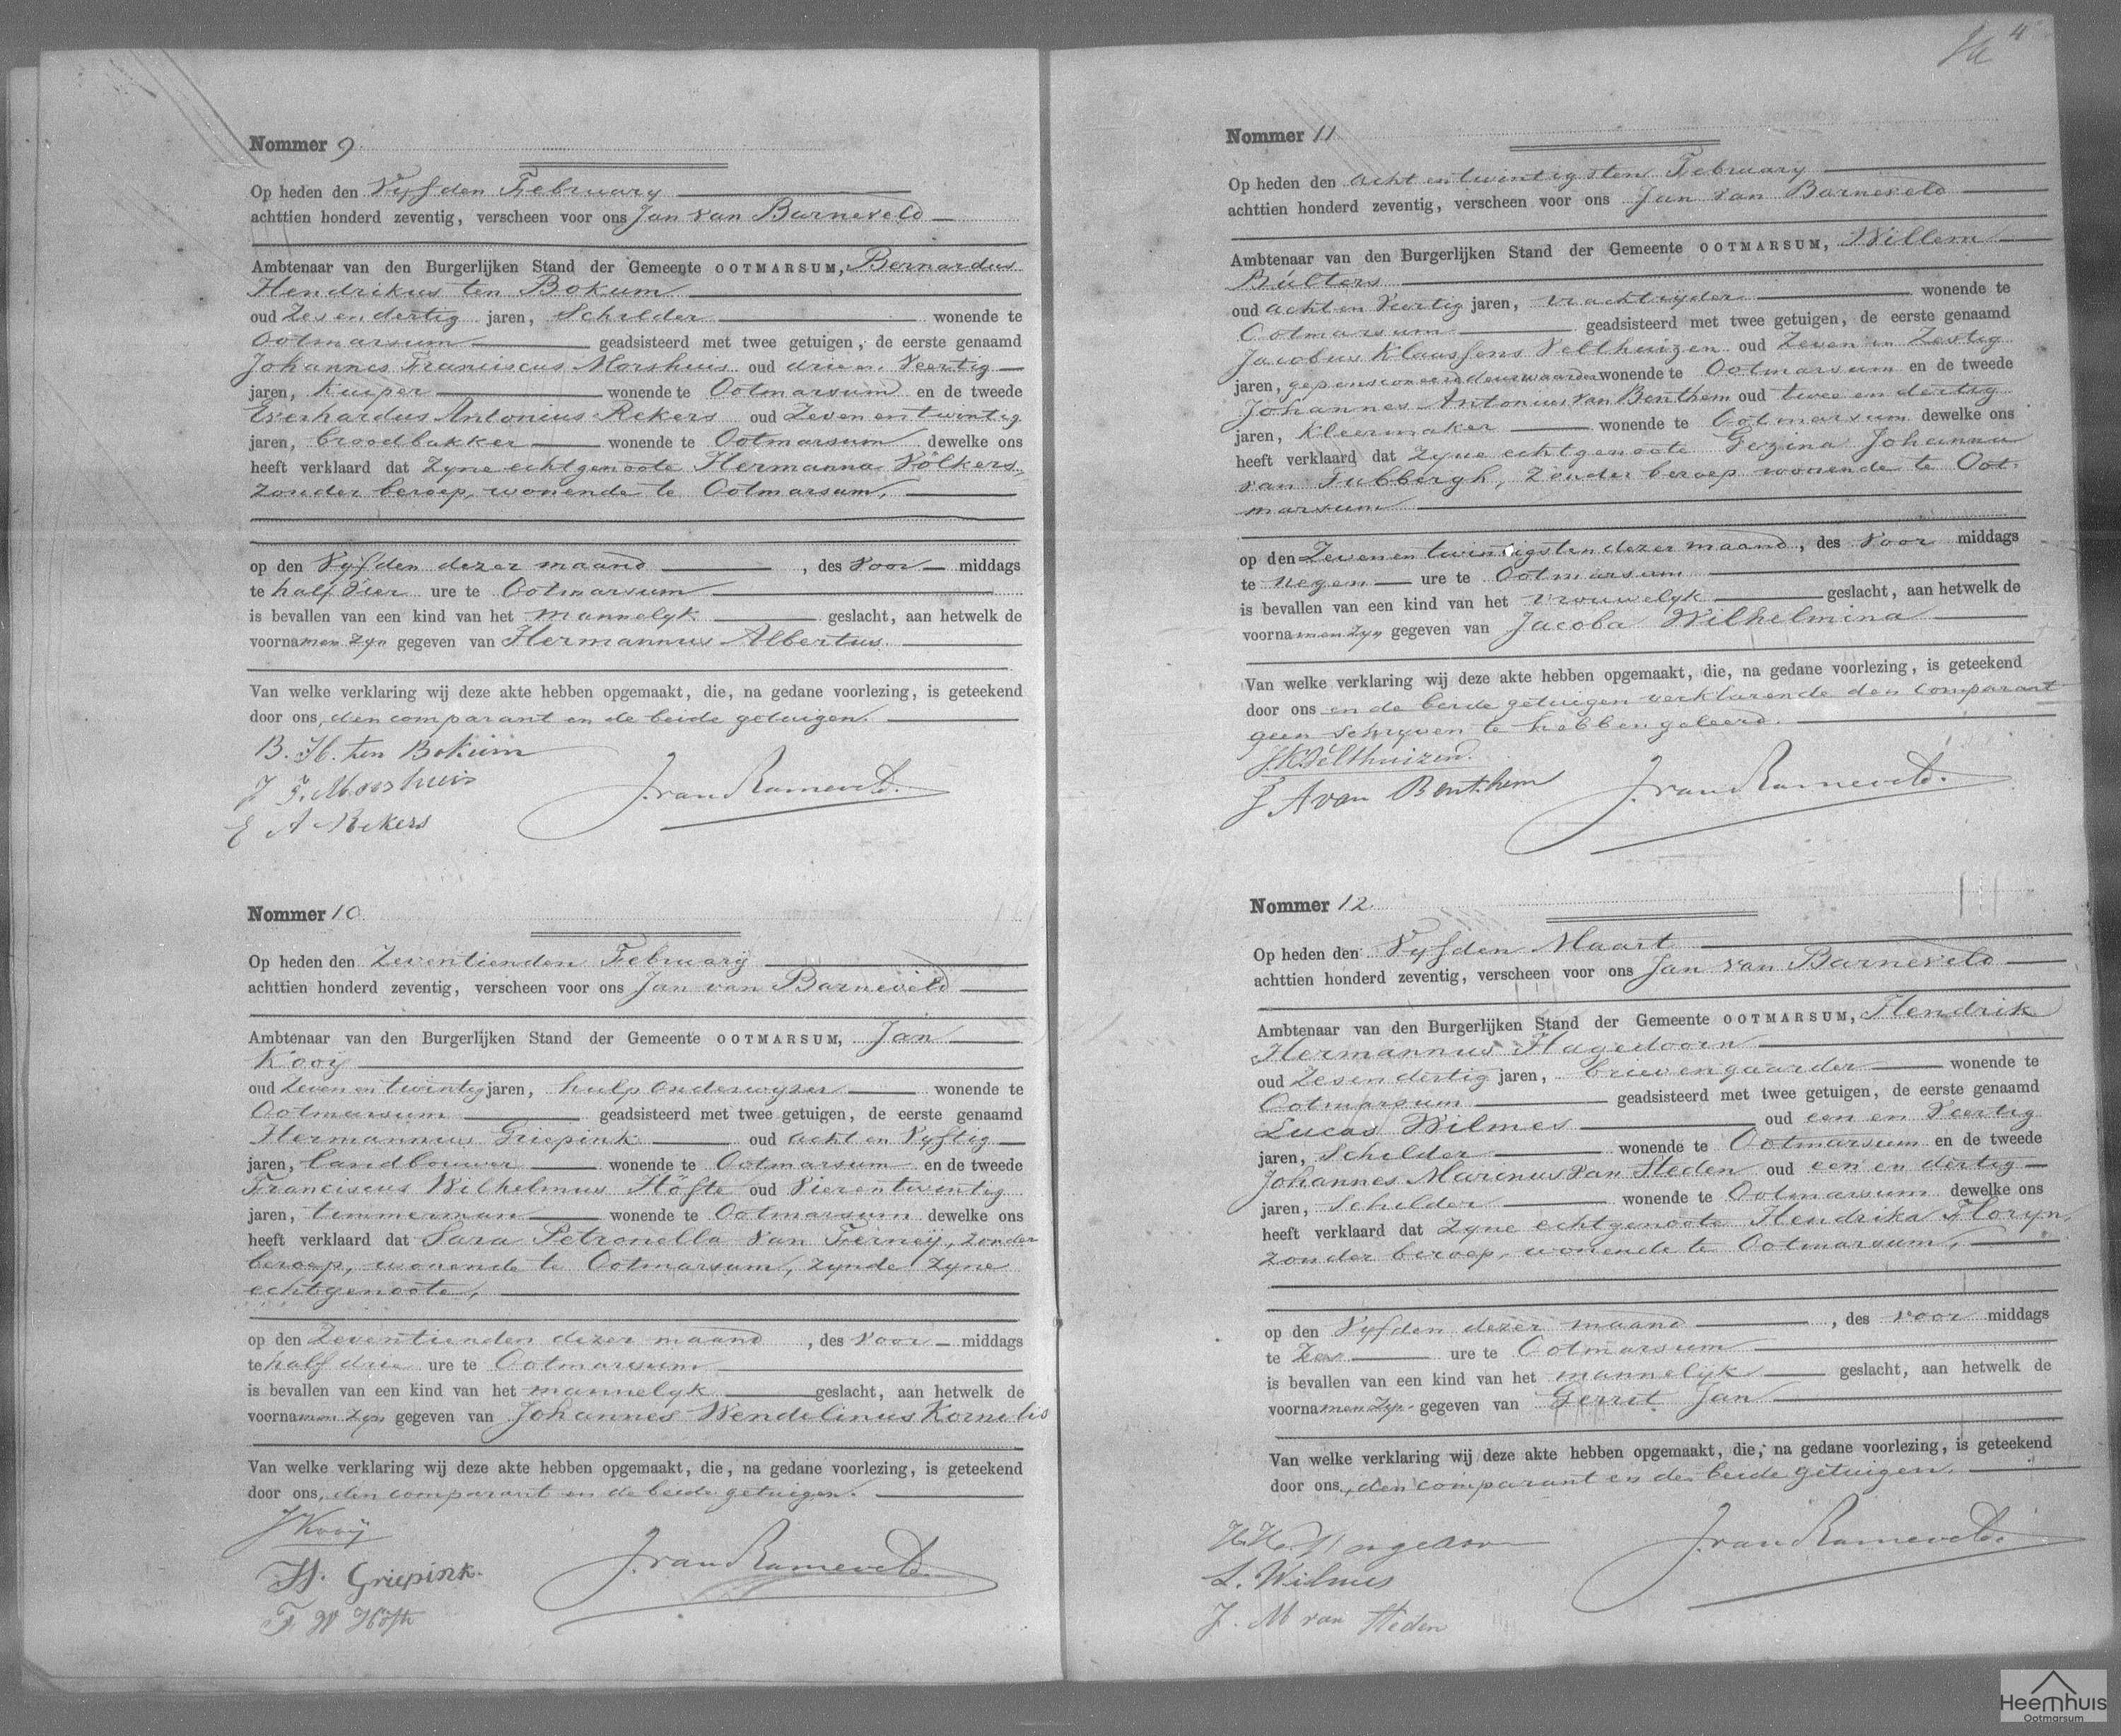 Nommer 9.
Op heden den Vyfden February
achttien honderd zeventig, verscheen voor ons Jan van Barneveld
Ambtenaar van den Burgerlijken Stand der Gemeente OOTMARSUM, Bernardus
Hendrikus ten Bokum
oud Zesendertig jaren, Schilder wonende te
Ootmarsum geadsisteerd met twee getuigen, de eerste genaamd
Johannes Franciscus Morshuis oud drieen Veertig
jaren, Kuiper wonende te Ootmarsum en de tweede
Everhardus Antonius Rekers oud Zevenentwintig
jaren, broodbakker wonende te Ootmarsum dewelke ons
heeft verklaard dat Zyne echtgenoote Hermanna Völkers,
zonder beroep, wonende te Ootmarsum,
op den Vyfden dezer maand, des Voor middags
te half Vier ure te Ootmarsum
is bevallen van een kind van het mannelyk geslacht, aan hetwelk de
voornamen zyn gegeven van Hermannus Albertus.
Van welke verklaring wij deze akte hebben opgemaakt, die, na gedane voorlezing, is geteekend
door ons, den comparant en de beide getuigen.
B. H. ten Bokum
J. F. Morshuis J. van Barneveld.
E A Rekers
Nommer 10
Op heden den Zeventienden February
achttien honderd zeventig, verscheen voor ons Jan van Barneveld
Ambtenaar van den Burgerlijken Stand der Gemeente OOTMARSUM, Jan
Kooij
oud Zevenentwintig jaren, hulponderwyzer wonende te
Ootmarsum geadsisteerd met twee getuigen, de eerste genaamd
Hermannus Griepink oud acht en Vyftig
jaren, landbouwer wonende te Ootmarsum en de tweede
Franciscus Wilhelmus Höfte oud Vierentwintig
jaren, timmerman wonende te Ootmarsum dewelke ons
heeft verklaard dat Sara Petronella van Ferney, zonder
beroep, wonende te Ootmarsum, zynde zyne
echtgenoote,
op den Zeventienden dezer maand, des Voor middags
te half drie ure te Ootmarsum
is bevallen van een kind van het mannelyk geslacht, aan hetwelk de
voornamen zyn gegeven van Johannes Wendelinus Kornelis
Van welke verklaring wij deze akte hebben opgemaakt, die, na gedane voorlezing, is geteekend
door ons, den comparant en de beide getuigen.
J Kooij
H. Griepink. J. van Barneveld.
F W Höfte
4
Nommer 11
Op heden den acht en twintigsten February
achttien honderd zeventig, verscheen voor ons Jan van Barneveld
Ambtenaar van den Burgerlijken Stand der Gemeente OOTMARSUM, Willem
Bulters
oud achten Veertig jaren, vrachtryder wonende te
Ootmarsum geadsisteerd met twee getuigen, de eerste genaamd
Jacobus Klaassens Velthuizen oud Zeven en Zestig
jaren, gepensioneerd deurwaarder wonende te Ootmarsum en de tweede
Johannes Antonius van Benthem oud twee en dertig
jaren, Kleermaker wonende te Ootmarsum dewelke ons
heeft verklaard dat Zyne echtgenoote Gezina Johanna
van Tubbergh, zonder beroep wonende te Oot-
marsum
op den Zevenentwintigsten dezer maand, des Voor middags
te negen ure te Ootmarsum
is bevallen van een kind van het vrouwelyk geslacht, aan hetwelk de
voornamen zyn gegeven van Jacoba Wilhelmina
Van welke verklaring wij deze akte hebben opgemaakt, die, na gedane voorlezing, is geteekend
door ons en de beide getuigen verklarende den comparant
geen schryven te hebben geleerd.
J.K. Velthuizen.
J A van Benthem J. van Barneveld.
Nommer 12.
Op heden den Vyfden Maart
achttien honderd zeventig, verscheen voor ons Jan van Barneveld
Ambtenaar van den Burgerlijken Stand der Gemeente OOTMARSUM, Hendrik
Hermannus Hagedoorn
oud Zesendertig jaren, brievengaarder wonende te
Ootmarsum geadsisteerd met twee getuigen, de eerste genaamd
Lucas Wilmes oud een en Veertig
jaren, Schilder wonende te Ootmarsum en de tweede
Johannes Marinus van Heden oud een en dertig
jaren, Schilder wonende te Ootmarsum dewelke ons
heeft verklaard dat Zyne echtgenoote Hendrika Floryn,
zonder beroep, wonende te Ootmarsum,
op den Vyfden dezer maand, des voor middags
te Zes ure te Ootmarsum
is bevallen van een kind van het mannelijk geslacht, aan hetwelk de
voornamen zyn gegeven van Gerrit Jan
Van welke verklaring wij deze akte hebben opgemaakt, die, na gedane voorlezing, is geteekend
door ons, den comparant en de beide getuigen.
H. H. Hagedoorn J. van Barneveld.
L. Wilmes
J. M van Heden
Heemhuis
Ootmarsum